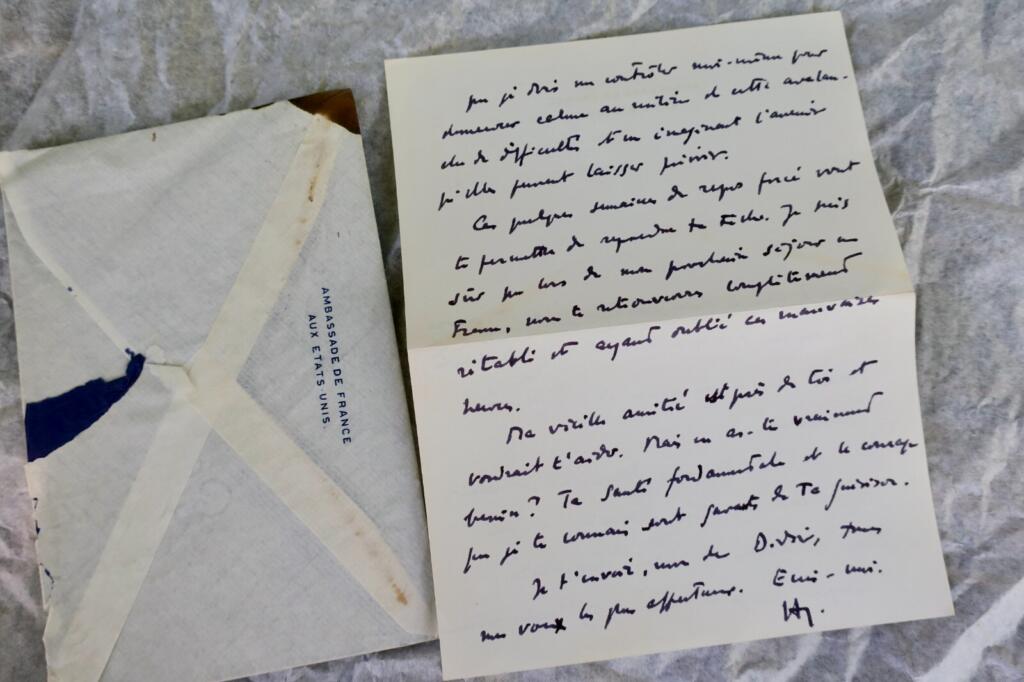 AMBASSADE DE FRANCE
AUX ETATS-UNIS.
que je dois me contrôler moi-même pour
demeurer calme au milieu de cette avalan-
che de difficultés et en imaginant l'avenir
qu'elles peuvent laisser prévoir.
Ces quelques semaines de repos forcé vont
te permettre de reprendre ta tâche. Je suis
sûr que lors de mon prochain séjour en
France, nous te retrouverons complètement
rétabli et ayant oublié ces mauvaises
heures.
Ma vieille amitié est près de toi et
voudrait t'aider. Mais en as-tu vraiment
besoin ? Ta santé fondamentale et le courage
que je te connais sont garants de Ta guérison.
Je t'envoie, mon cher Didier, tous
mes vœux les plus affectueux. Ecris-moi.